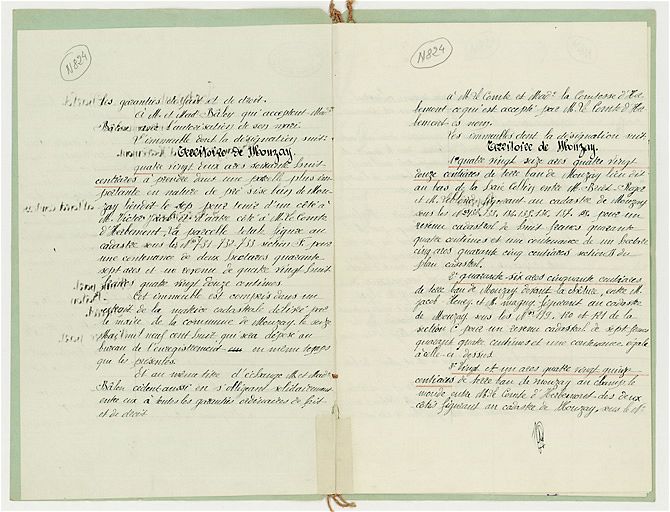 N824
les garanties de fait et de droit.
à M. et Mad. Bâlon qui acceptent Mad.
Bâlon avec l'autorisation de son mari.
L'immeuble dont la désignation suit:
Territoire de Mouzay
quatre vingt deux ares soixante huit
centiares à prendre dans une parcelle plus im-
portante en nature de pré sise ban de Mou-
zay lieudit le sep pour tenir d'un côté à
M. Victor et d'autre côté à M. le Comte
d'Herbemont, La parcelle totale figure au
cadastre sous les Nos 731 732 733 section F. pour
une contenance de deux hectares quarante
sept ares et un revenu de quatre vingt huit
francs quatre vingt douze centimes.
Cet immeuble est compris dans un
extrait de la matrice cadastrale délivré par
le maire de la commune de Mouzay le seize
mai mil neuf cent huit qui sera déposé au
bureau de l'enregistrement en même temps
que les présentes.
Et au même titre d'échange M. et Mad.
Bâlon cèdent aussi en s'obligeant solidairement
entre eux à toutes les garanties ordinaires de fait
et de droit
N824
à M. le Comte et Mad. la Comtesse d'Her-
bemont ce qui est accepté par M. le Comte d'Her-
bemont es nom.
Les immeubles dont la désignation suit
Territoire de Mouzay.
1º quatre vingt seize ares quatre vingt
douze centiares de terre ban de Mouzay lieu dit
au bas de la entre M.
et M. figurant au cadastre de Mouzay
sous les Nos pour un
revenu cadastral de huit francs quarante
quatre centimes et une contenance de un hectare
cinq ares quarante cinq centiares section du
plan cadastral.
2º quarante six ares cinquante centiares
de terre ban de Mouzay devant la entre M.
Jacob Henry et M. Magny figurant au cadastre
de Mouzay sous les Nos 119. 120 et 121 de la
section C pour un revenu cadastral de sept francs
quarante quatre centimes et une contenance égale
à celle ci dessus.
3º Vingt et un ares quatre vingt quinze
centiares de terre ban de mouzay au champ le
entre M. le Comte d'Herbemont des deux
côtés figurant au cadastre de Mouzay, sous le Nº